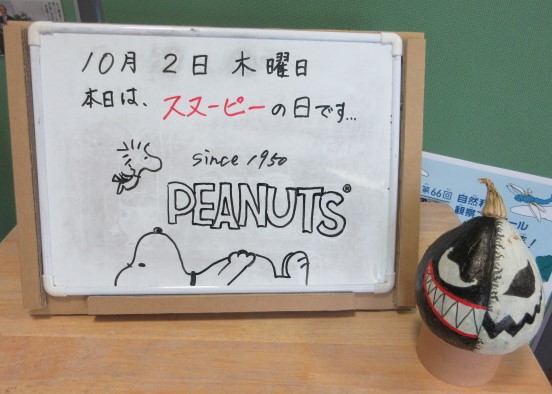 10月 2日 木曜日
本日は、スヌーピーの日です...
since 1950
PEANUTS®
第66回 自然
観察